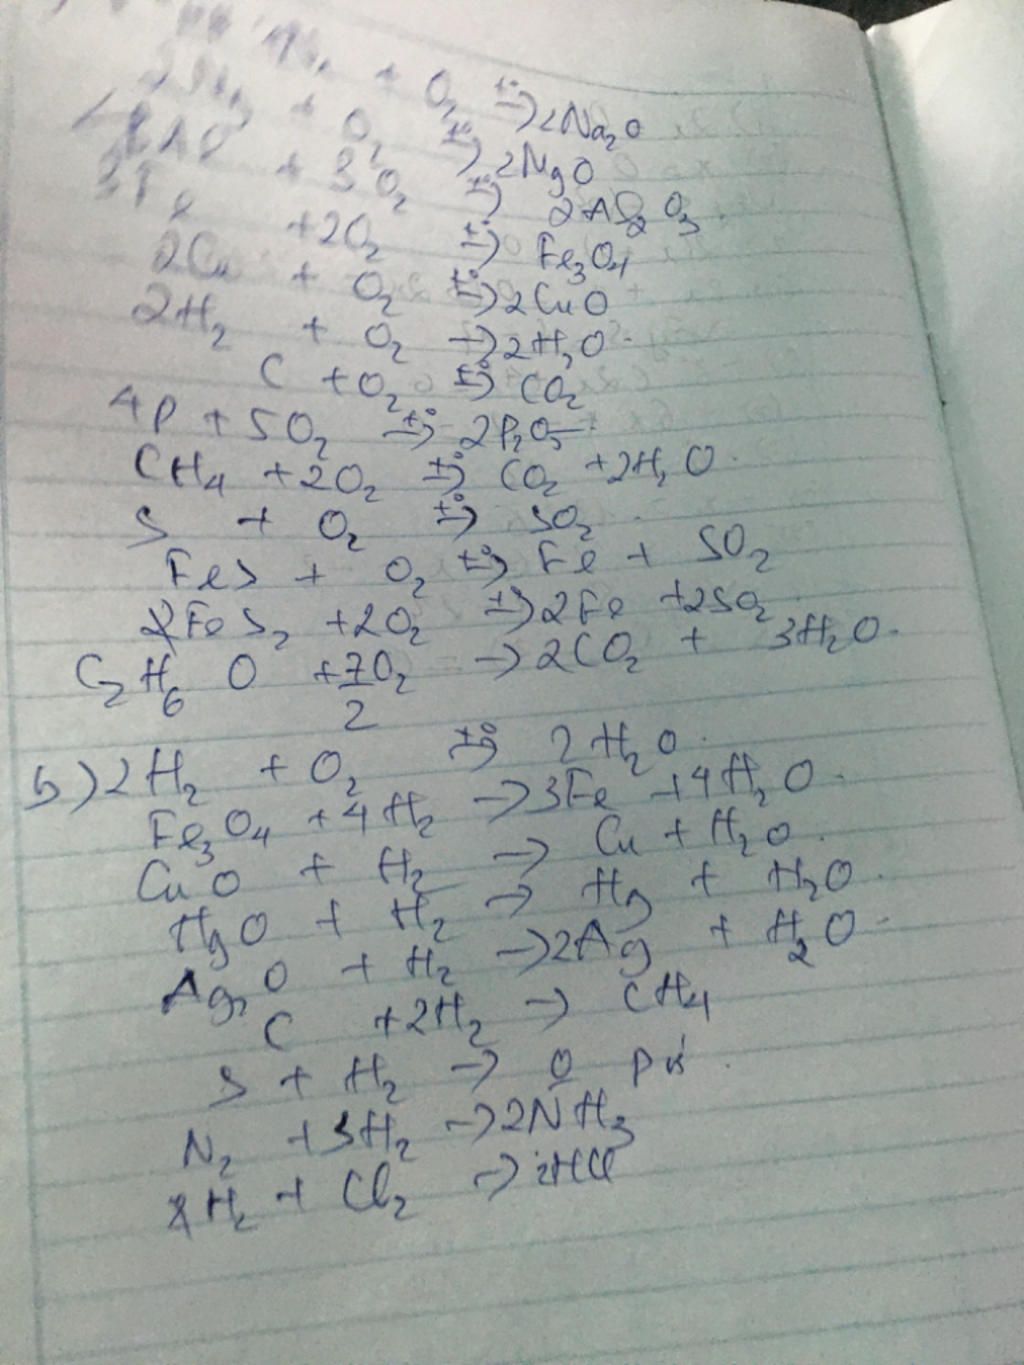 + O₂ t°→ 2Na₂O
+ O₂ t°→ 2NgO
+ 3O₂ t°→ 2Al₂O₃
3Fe +2O₂ t°→ Fe₃O₄
2Cu + O₂ t°→ 2CuO
2H₂ + O₂ → 2H₂O.
C + O₂ t°→ CO₂
4P + 5O₂ t°→ 2P₂O₅
CH₄ + 2O₂ t°→ CO₂ + 2H₂O.
S + O₂ t°→ SO₂.
FeS + O₂ t°→ Fe + SO₂
FeS₂ + 2O₂ t°→ 2Fe + 2SO₂
C₂H₆O + 7/2 O₂ → 2CO₂ + 3H₂O.
b) 2H₂ + O₂ t°→ 2H₂O.
Fe₃O₄ + 4H₂ → 3Fe + 4H₂O.
CuO + H₂ → Cu + H₂O.
HgO + H₂ → Hg + H₂O.
Ag₂O + H₂ → 2Ag + H₂O.
C + 2H₂ → CH₄
S + H₂ → O pứ.
N₂ + 3H₂ → 2NH₃
H₂ + Cl₂ → 2HCl